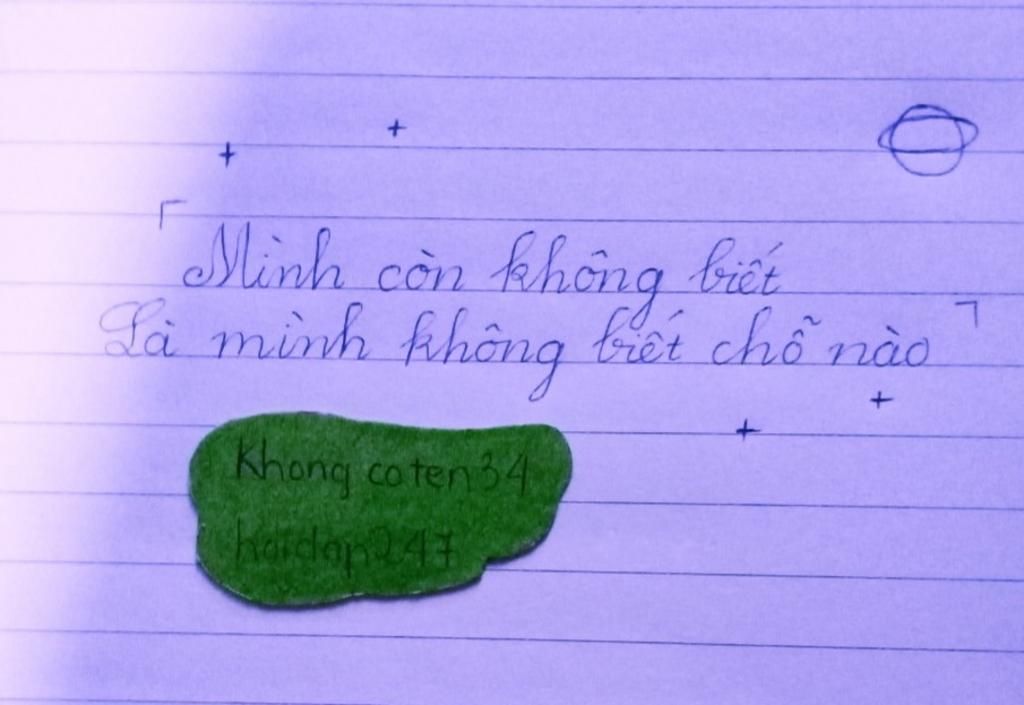 「Mình còn không biết
Là mình không biết chỗ nào」
Khong co ten 34
hoidap247